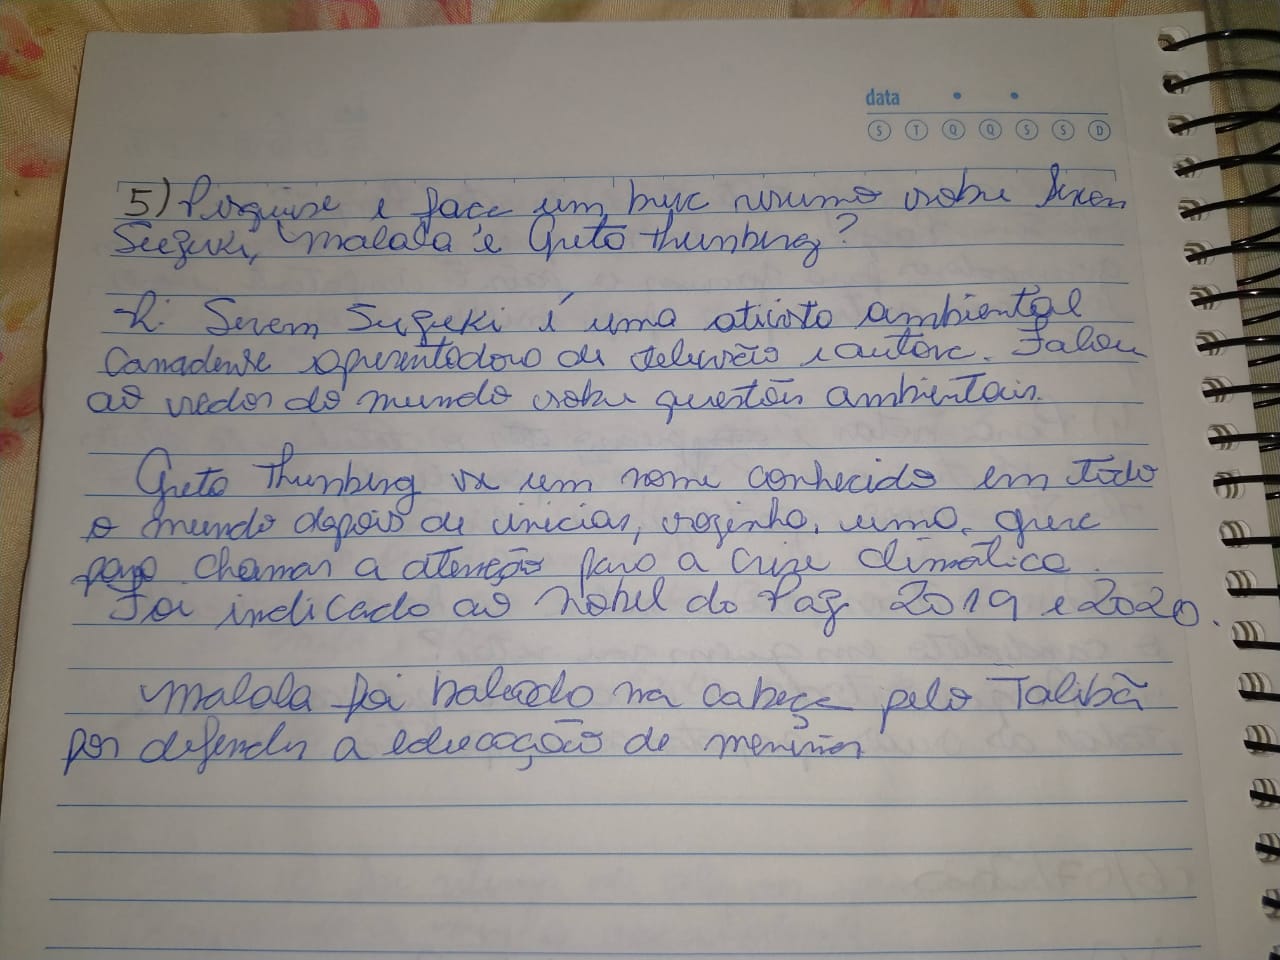 data
S T Q Q S S D
5) Pesquise e faça um breve resumo sobre Seven
Suzuki, Malala e Greta Thunberg?
R: Severn Suzuki é uma ativista ambiental
canadense apresentadora de televisão e autora. Falou
ao redor do mundo sobre questões ambientais.
Greta Thunberg se um nome conhecido em todo
o mundo depois de iniciar, sozinha, uma greve
para chamar a atenção para a crise climática.
Foi indicada ao Nobel da Paz 2019 e 2020.
Malala foi baleada na cabeça pelo Talibã
por defender a educação de meninas